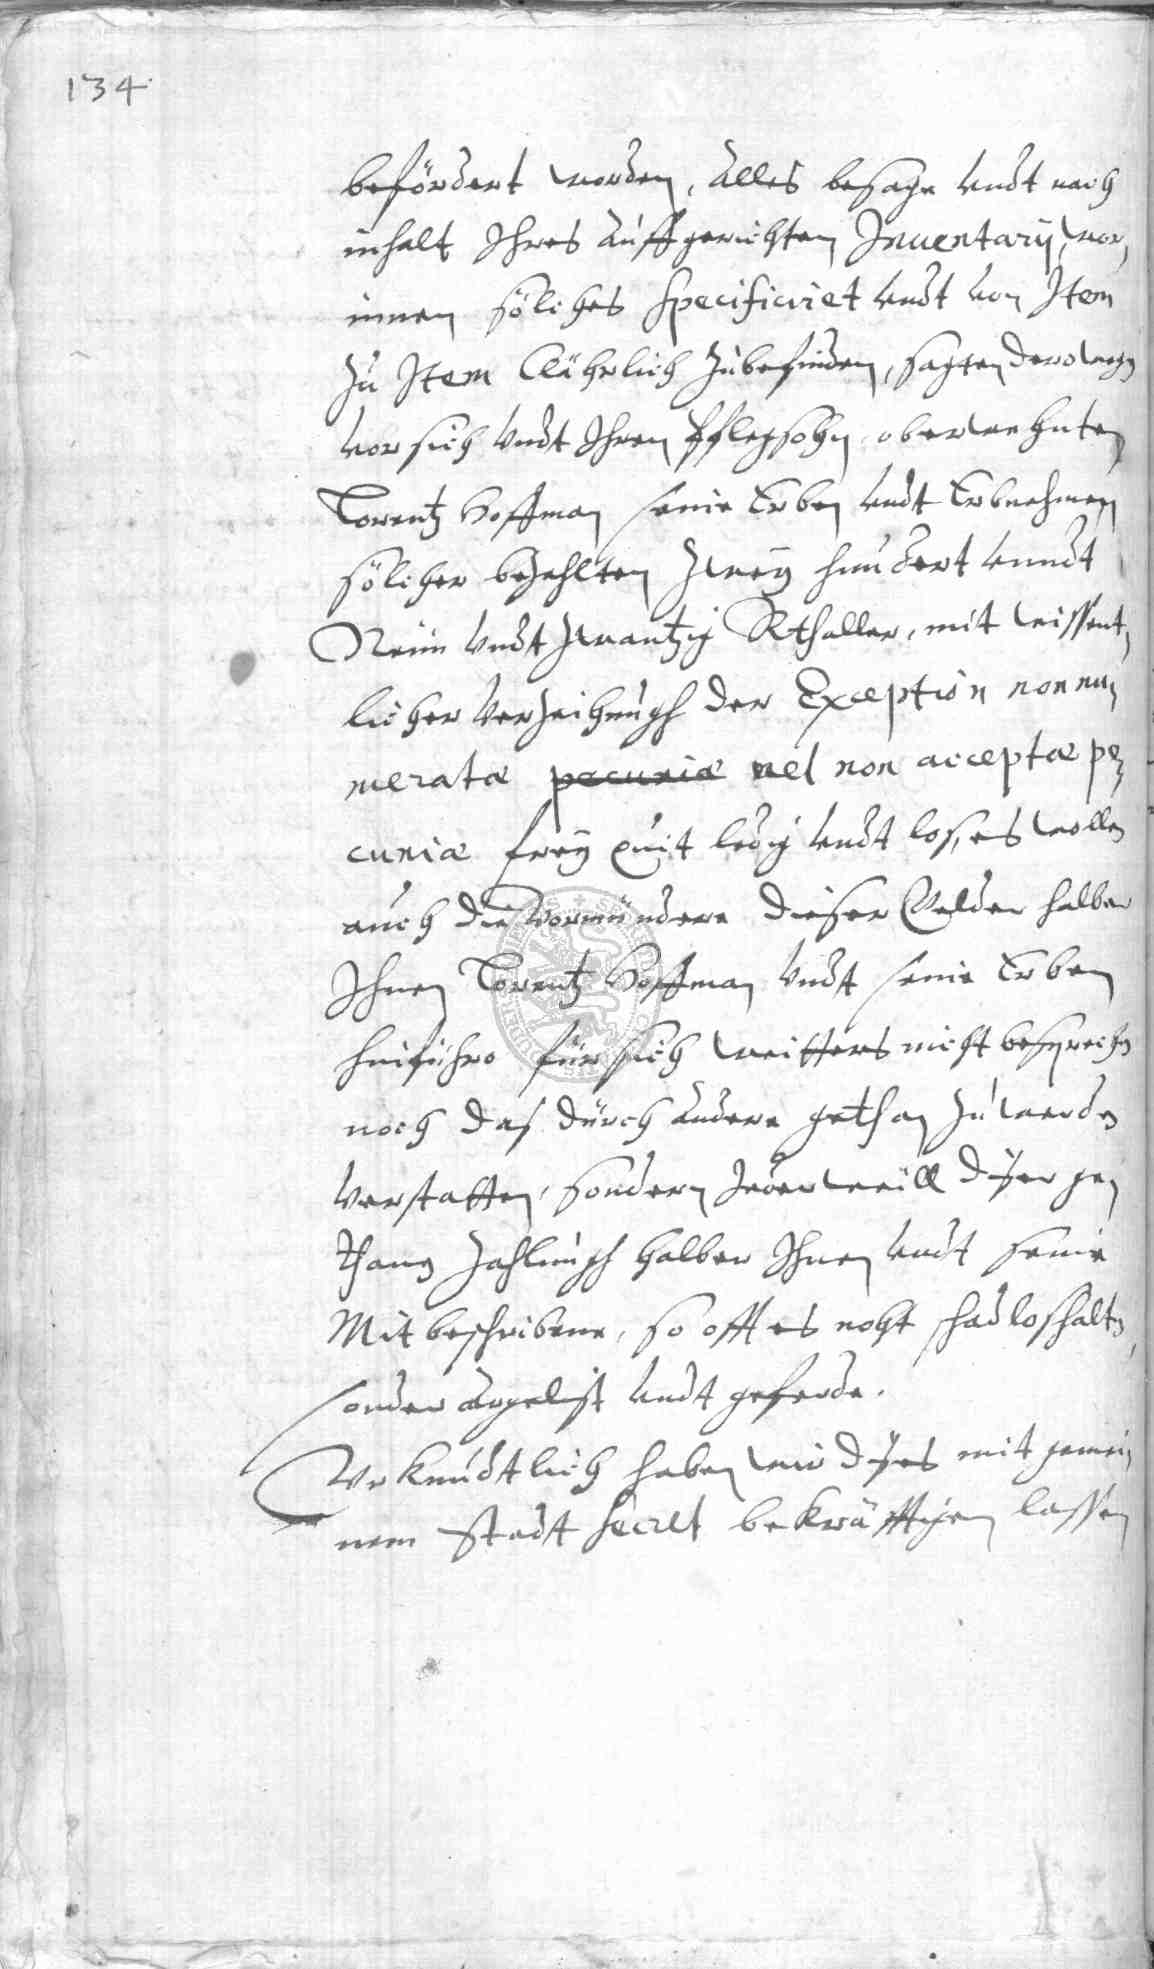 134
befördert worden, alles besage vndt nach
inhalt Ihres auffgerichten Inuentarij, wor,
innen sölches specificiret vndt von Item
zu Item klährlich zubefinden, sagten derowegn
vor sich vndt Ihren Pflegsohn oberwehnten
Lorentz Hoffman seine Erben vndt Erbnehmen
sölcher bezahlten zweÿ hundert vnndt
Neün vndt zwantzig Rthaller, mit wissent,
licher verzeihungh der Exception non nu,
meratæ pecuniæ vel non acceptæ pe,
cuniæ freÿ quit ledig vndt los, es wollen
auch die Vormündere dieser Gelder halber
Ihnen Lorentz Hoffman vndt seine Erben
hinführo für sich weitters nicht besprechn
noch das dürch andere gethan zu werdn
verstatten, sondern Jederweill dißer ge,
thane zahlungh halber Ihnen vndt seine
Mitbeschribene, so offt es noht schadloshaltn,
sonder argelist vndt geferde.
Vrkundtlich haben wir dißes mit gemei,
nem Stadt Secret bekräfftigen lassen